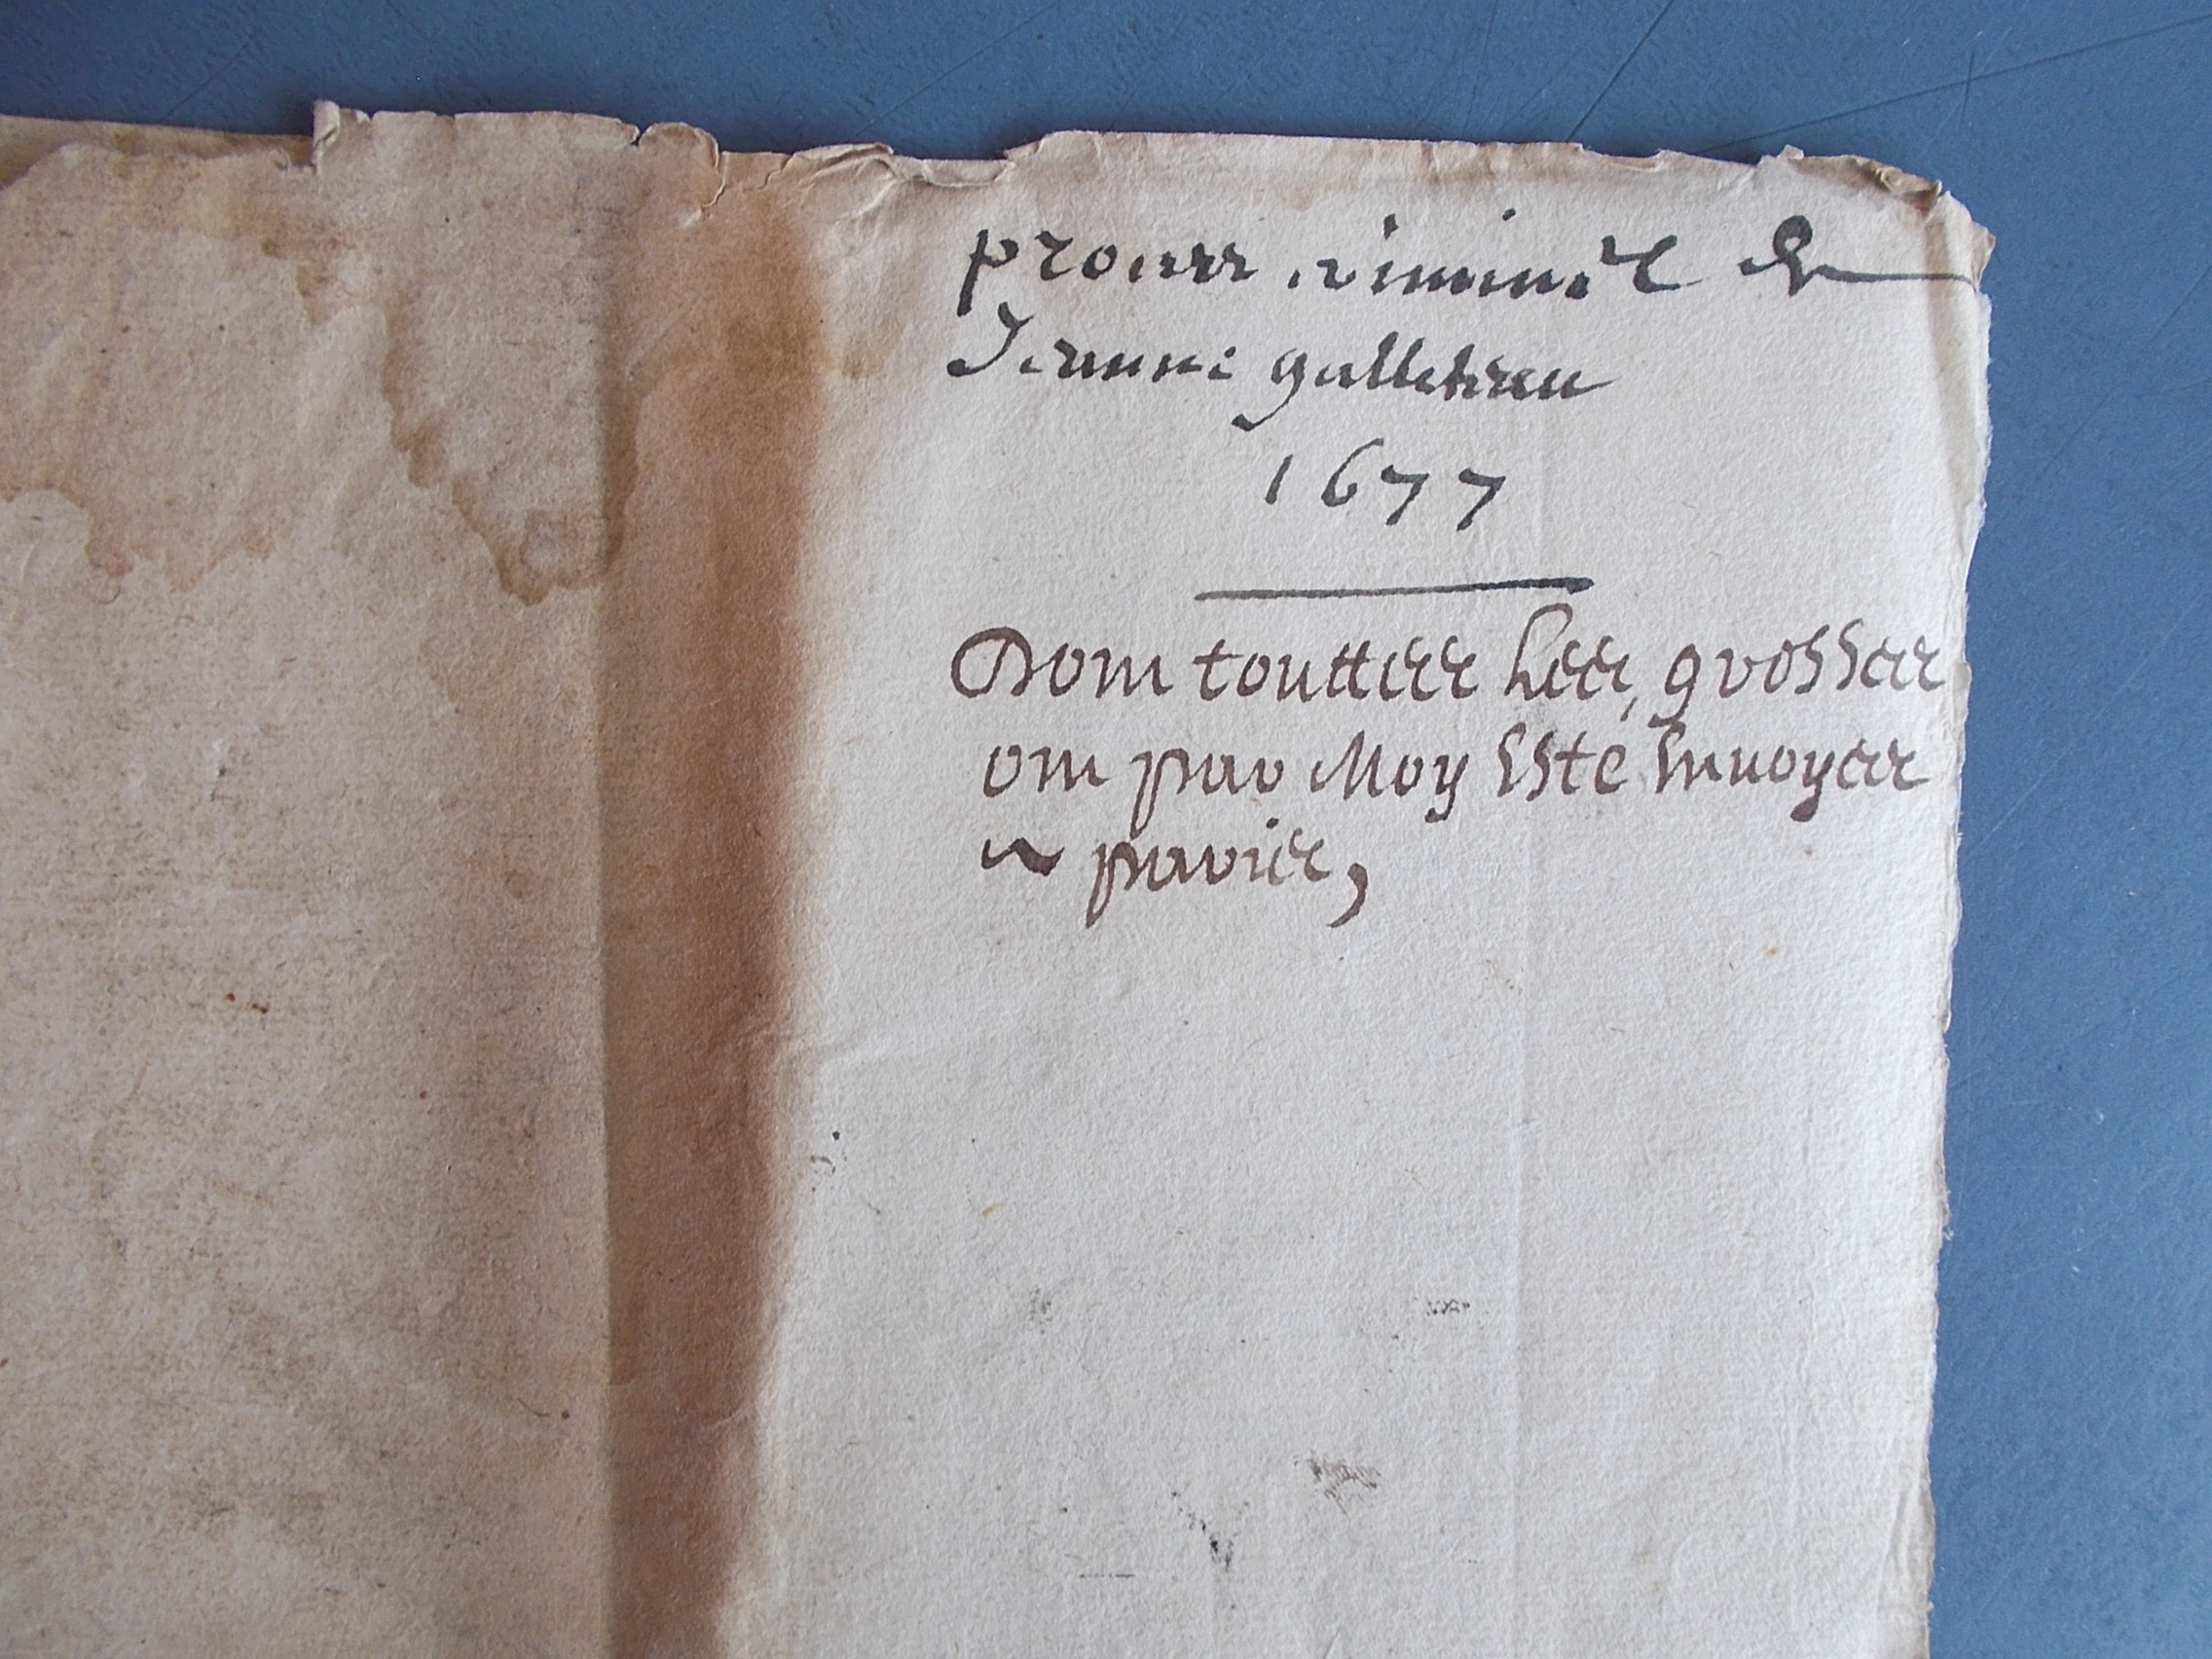 proces criminel de
Jeanne galleteau
1677
Dom touttes les grosses
om par Moy Esté Envoyes
a paris,